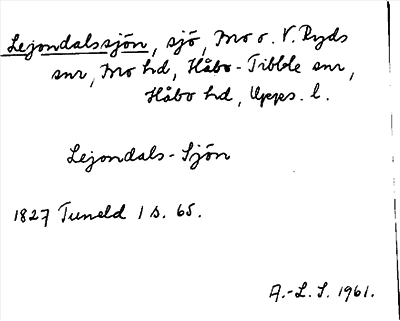 Lejondalssjön, sjö, Mo o. V. Ryds
snr, Mo hd, Håbo-Tibble snr,
Håbo hd, Upps. l.
Lejondals-Sjön
1827 Tuneld 1 s. 65.
A.-L. S. 1961.